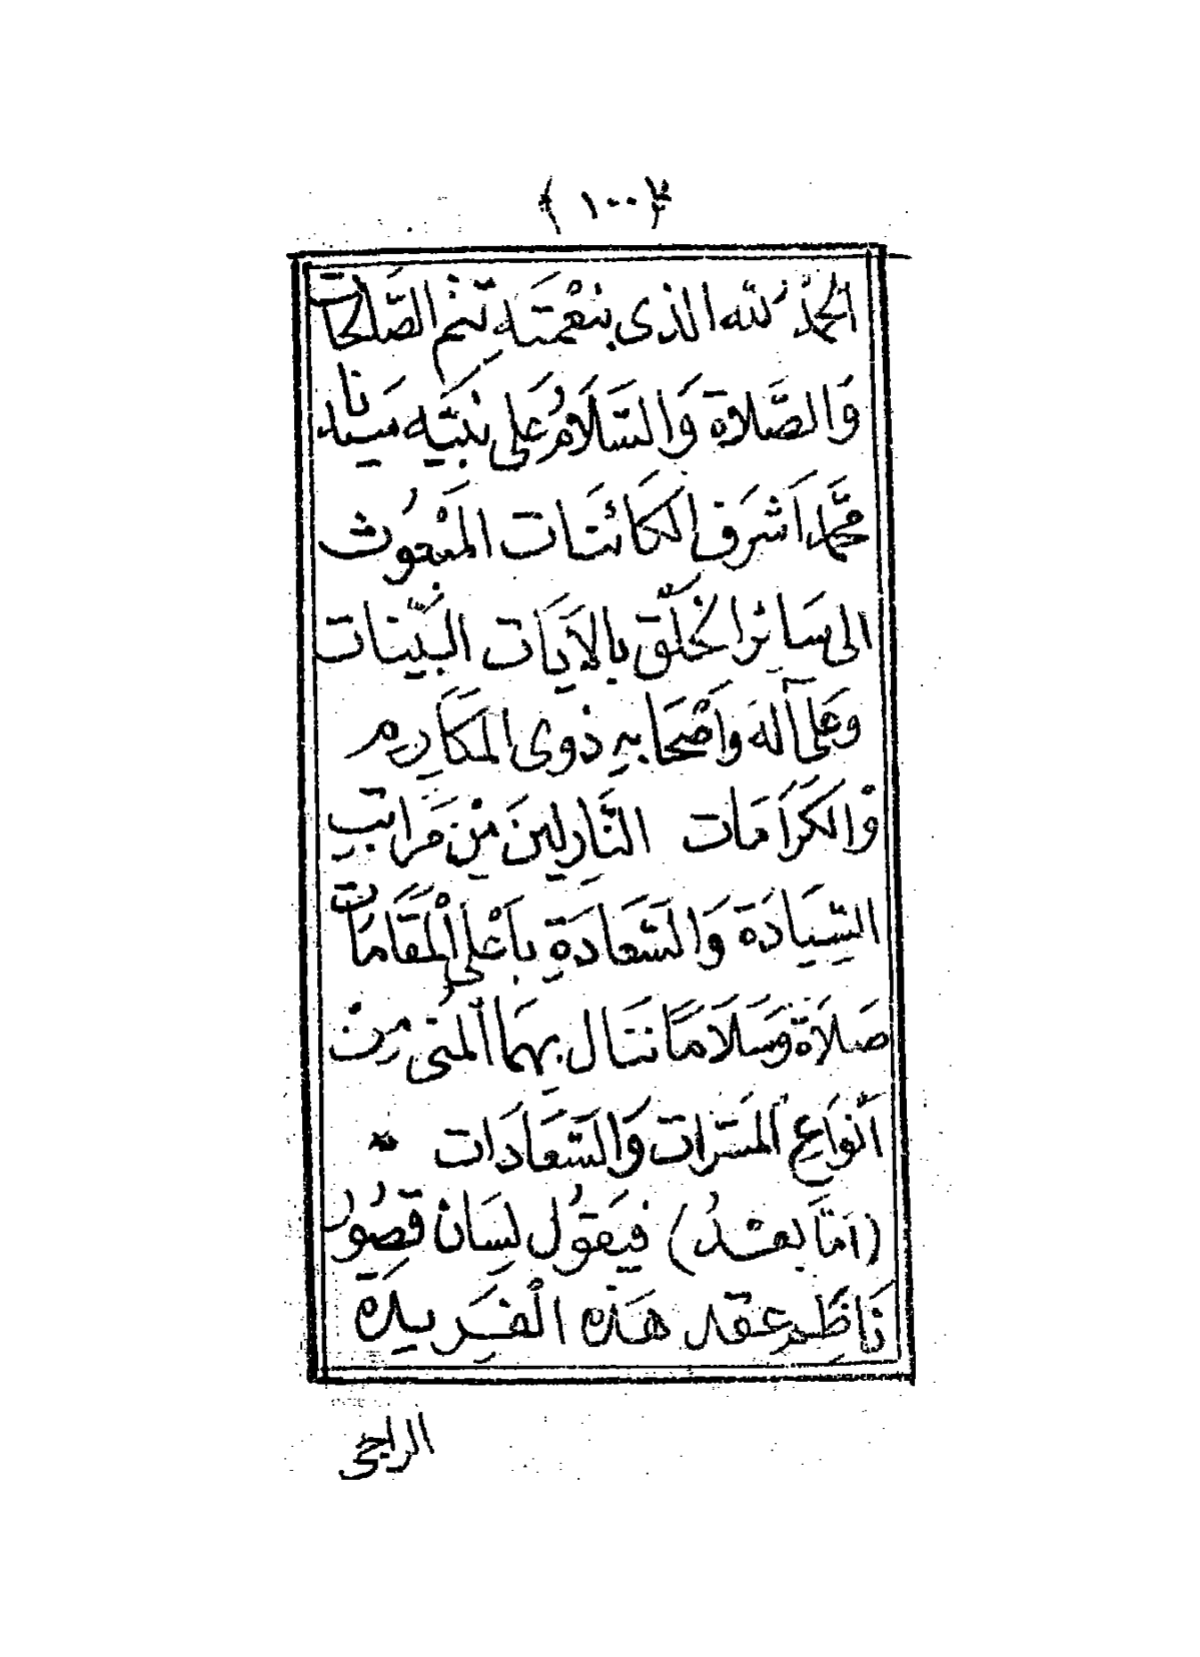 ﴿ ١٠٠ ﴾
الحمدُ لله الذى بنِعْمَتَه تَتِم الصَّلحات
وَالصَّلاة وَالسَّلَامُ عَلى نَبيَّه سَيدنا
محَّمد اَشرَف الكَائنَات المَبْعُوث
الى سَائر الخَلّق بالاَيَات البَيِّنات
وَعَلى آله وَاَصْحَابِهِ ذَوى المَكَارِم
وَالكَرَامَات النَّازِلِينَ مِنْ مَراتبِ
السِّيَادَة وَالسَّعَادَةِ بأَعْلى الْمَقَامَات
صَلَاةً وَسَلَامًا نَنَال بِهِمَا المُنَى مِنْ
أَنوَاعِ المَسَرات وَالسَّعَادَات *
(امَّا بَعْدُ) فيَقُول لِسَان قصُور
نَاظِم عقد هَذه الْفَرِيدَة
الراجى